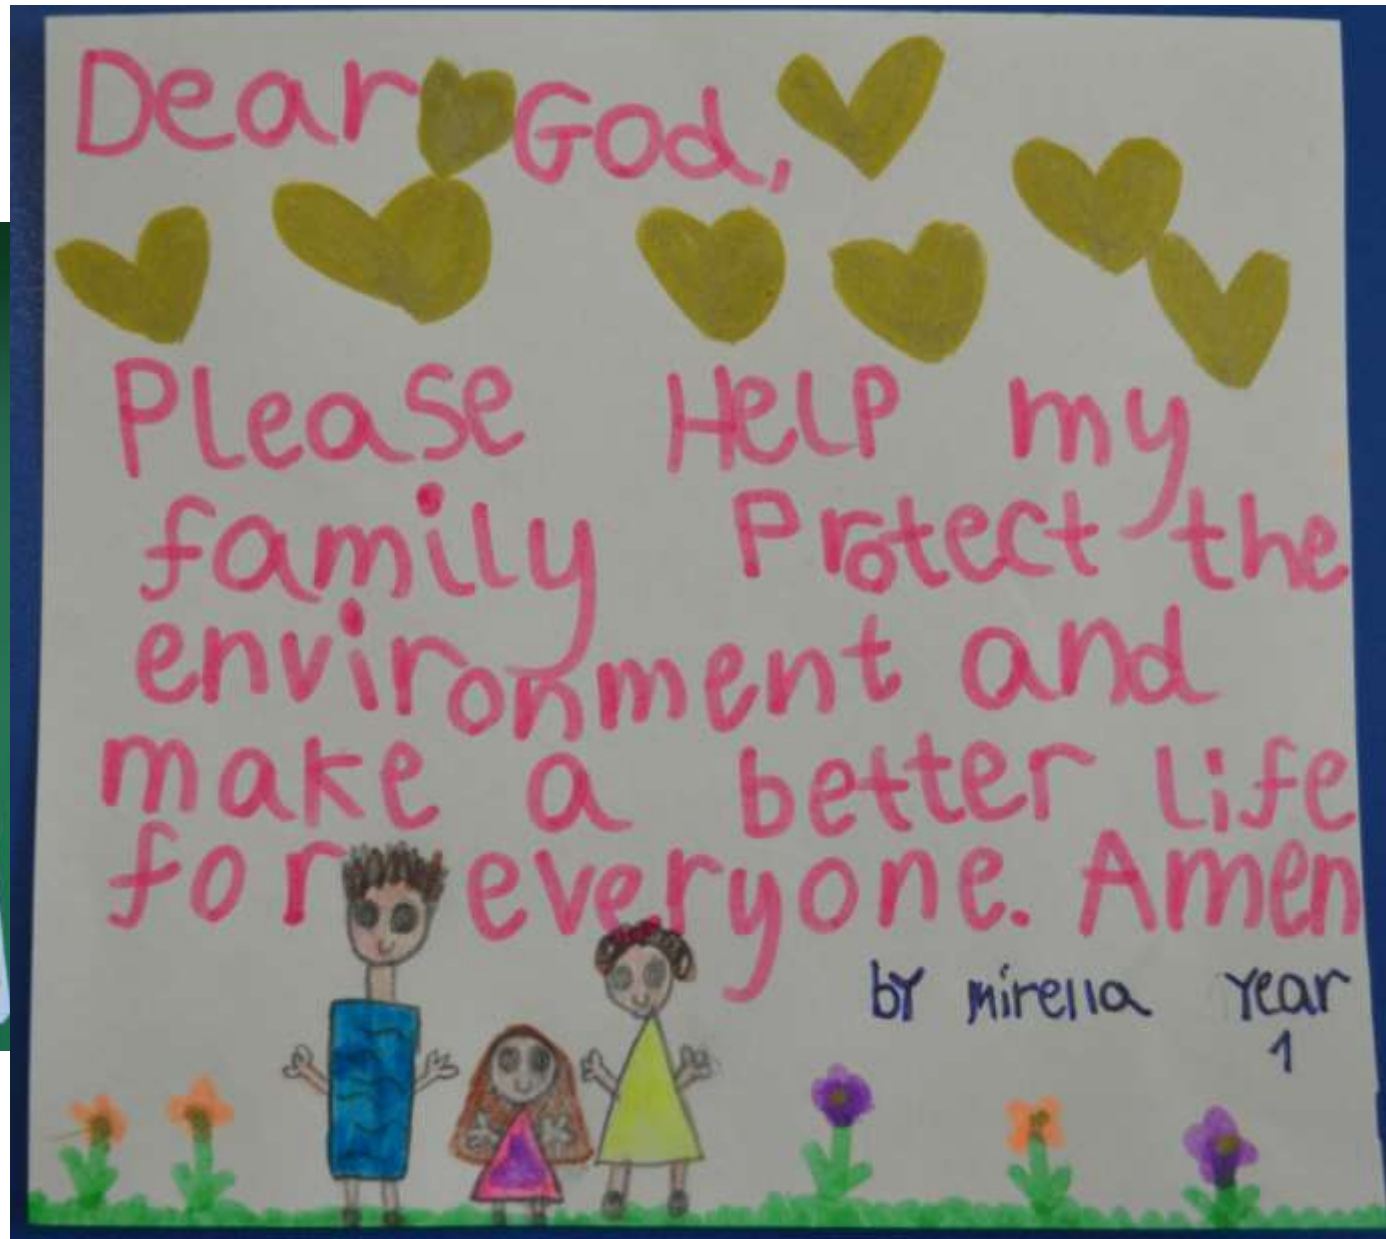 Dear God,
Please Help my
family Protect the
environment and
make a better life
for everyone. Amen
by mirella Year
1